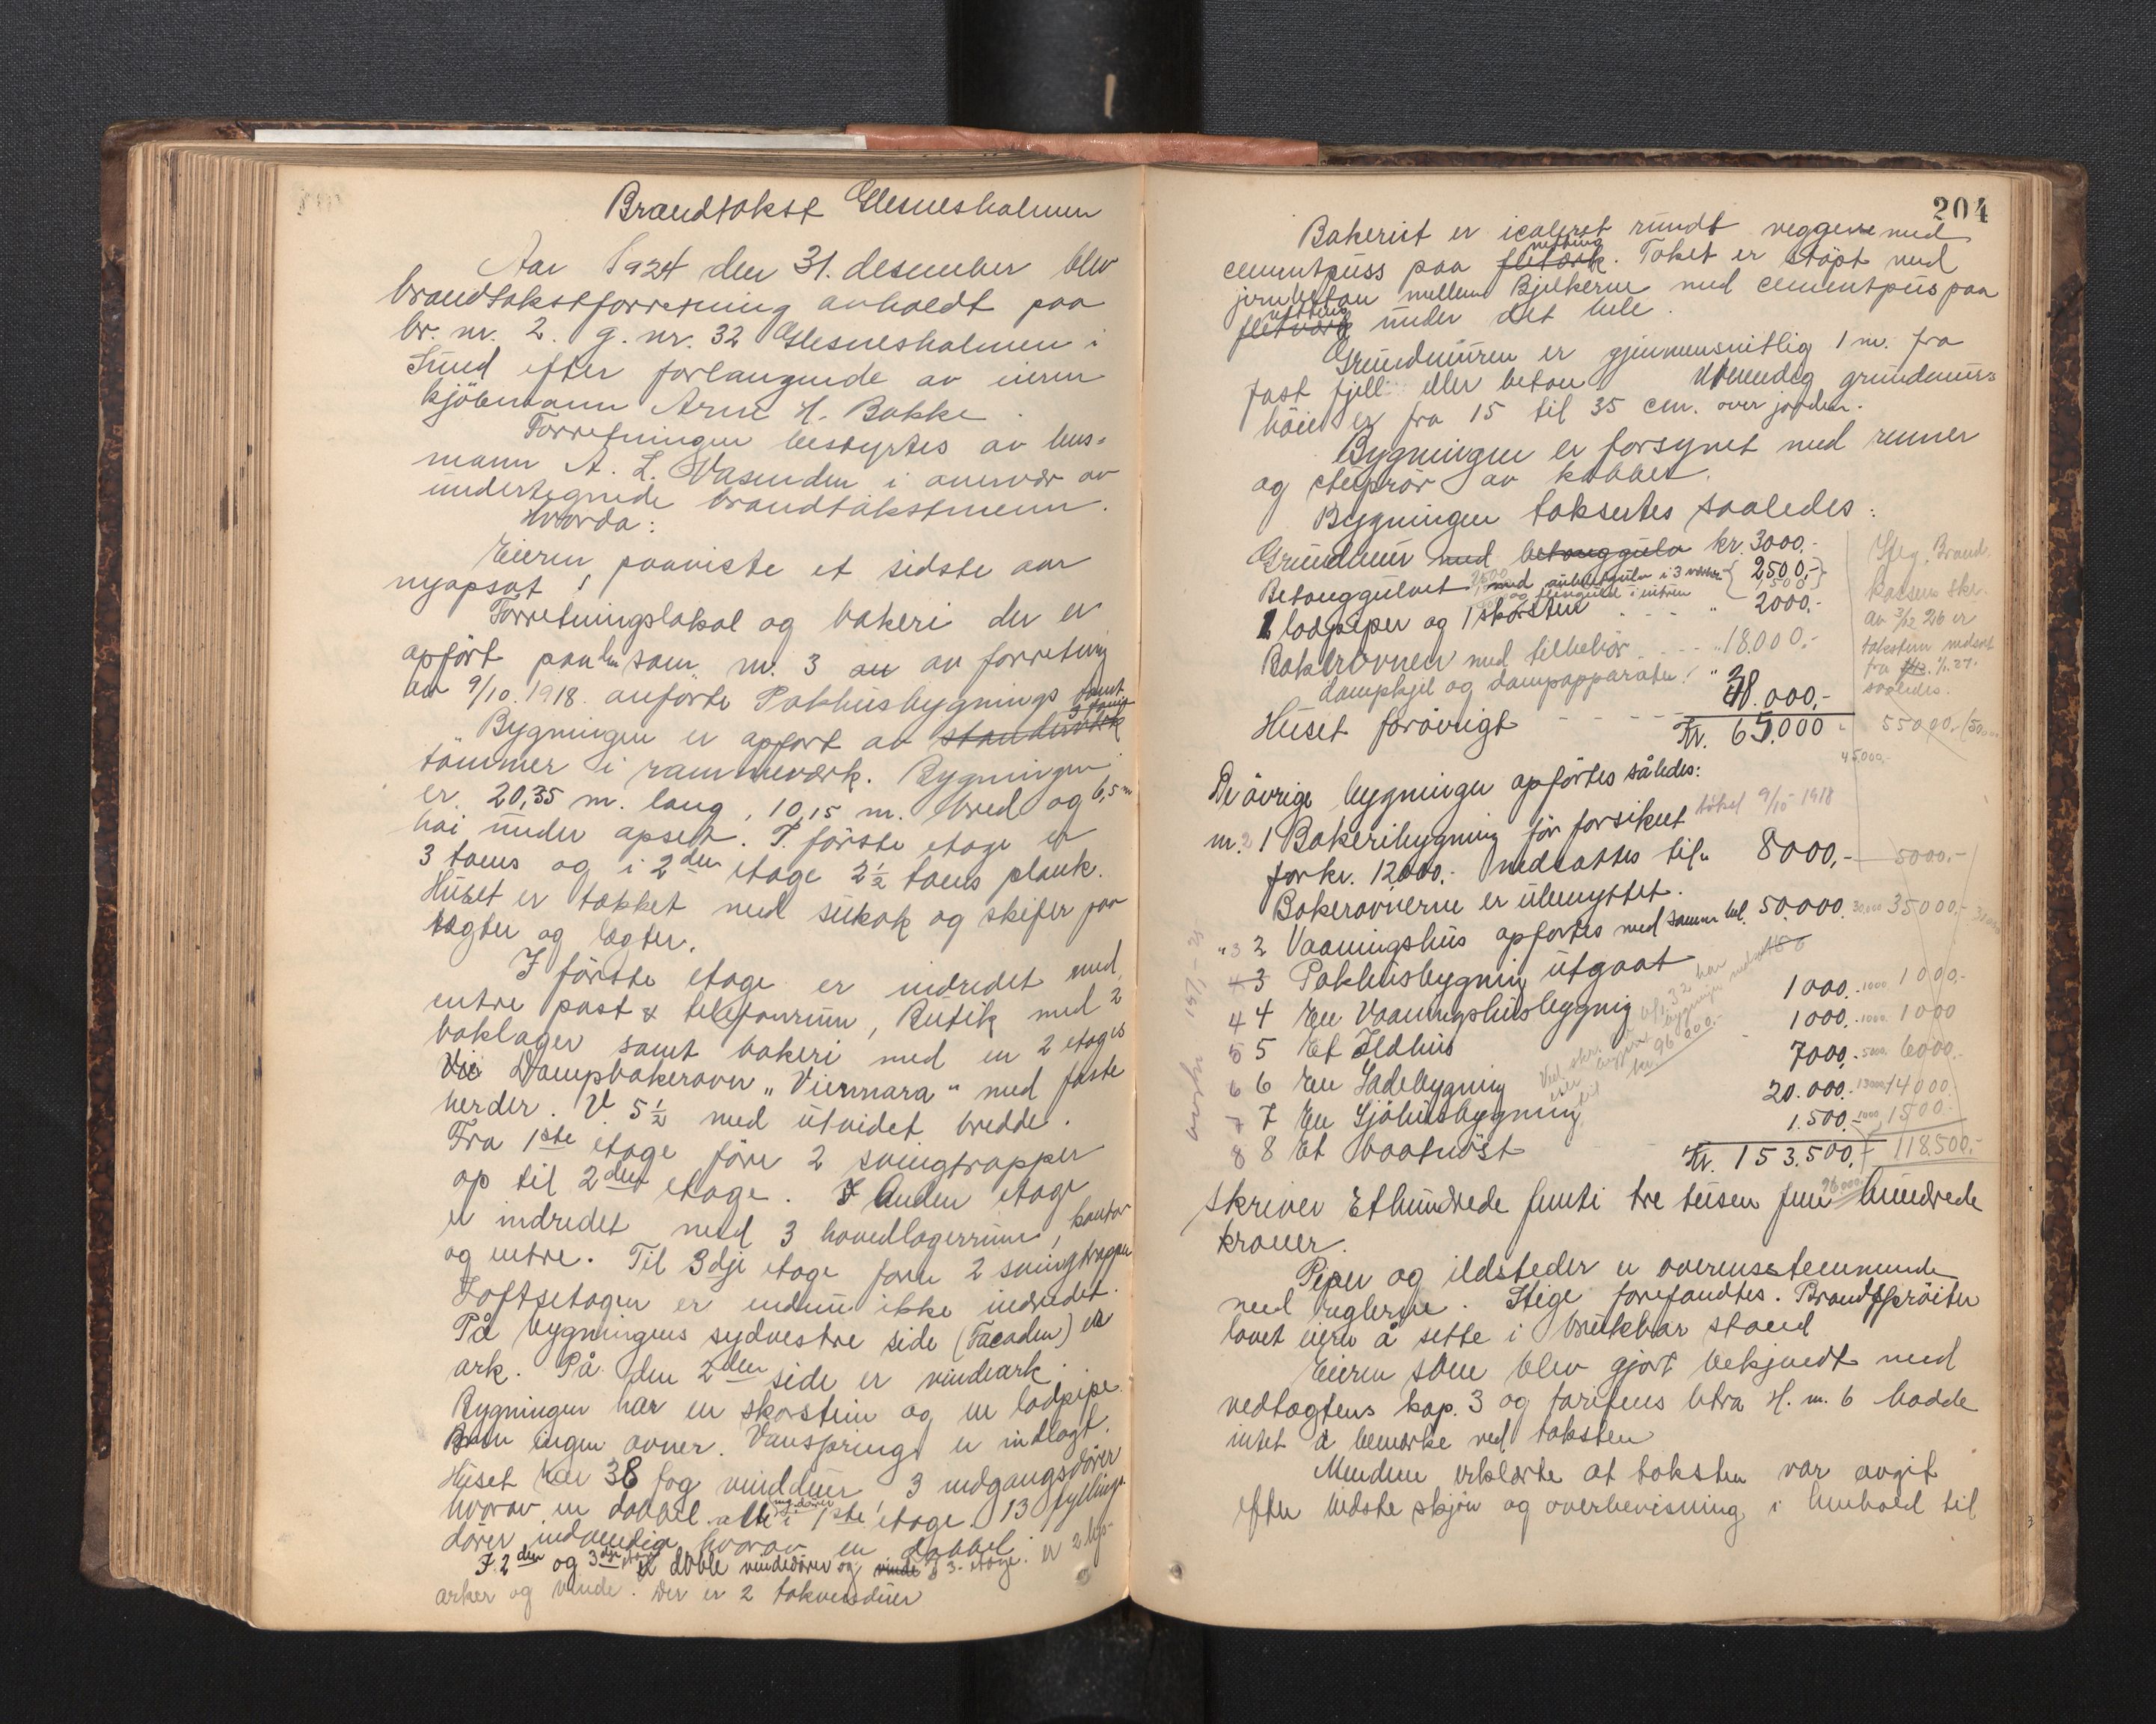 Brandtakst Glesnesholmen
Aar 1924 den 31. desember blev
brandtakstforretning avholdt paa
br. nr. 2. g. nr. 32 Glesnesholmen i
Sund efter forlangende av eieren
kjöbmann Arne H. Bakke.
Forretningen bestyrtes av lens-
mann A. L. Vasenden i overvær av
undertegnede brandtakstmenn.
Hvorda:
Eieren paaviste et sidste aar
nyopsat
Forretningslokal og bakeri der er
opfört paa som nr. 3 av forretning
av 9/10. 1918. anförte Pakhusbygnings tomt
Bygningen er opfört av standerverk 3 toms
tömmer i rammeværk. Bygningen
er 20,35 m. lang, 10,15 m. bred og 6,5 m
høi under opset. I förste etage er
3 toms og i 2den etage 2½ toms plank.
Huset er takket med sutak og skifer paa
lægter.
I förste etage er indredet med
entre post & telefonrum, Butik med 2
baklager samt bakeri med en 2 etages
Dampbakerovn "Viennara" med faste
herder. V. 5½ med utvidet bredde.
Fra 1ste etage före 2 svingtrapper
op til 2den etage. I Anden etage
er indredet med 3 hovedlagerrum, kontor
og entre. Til 3dje etage förer 2 svingtrapper
Loftsetagen er endnu ikke indredet.
På bygningens sydvestre side (Facaden) er
ark. På den 2den side er vindeark.
Bygningen har en skorstein og en lodpipe.
ingen ovner. Vanspring er indlagt.
Huset har 38 fag vinduer 3 indgangsdörer
hvorav en dobbel alle i 1ste etage. 13 fyllings
dörer indvendig hvorav en dobbel
I 2den og 3dje etage er doble vindedörer og vinde i 3- etage. er 2 lys-
arker og vinde. Der er 2 takvinduer
204
Bakeriet er isoleret rundt veggene med
cementpuss paa fletverk netting. Taket er støpt med
jernbeton mellem Bjelkerne med cementpus paa
fletverk netting under det hele.
Grundmuren er gjennemsnitlig 1 m. fra
fast fjell eller beton Utvendig grundmurs
höide er fra 15 til 35 cm. over jorden.
Bygningen er forsynet med renner
og stuprör av kobber.
Bygningen takseres saaledes:
Grundmur med betonggulv kr. 3000.-
Betonggulvet 2500,-
2 lodpiper og 1 skorsten " 2000.-
Bakerovnen med tilbehör " 18.000.-
dampkjel og dampapparater
Huset forövrigt 38.000,-
Kr. 65.000
Iflg. Brand.
kassens skr.
av 3/12 26 er
taksten nedsat
fra 1/1. 27.
saaledes.
55000,-
45.000.-
De övrige bygninger opförtes således:
nr. 2 1 Bakeribygning för forsikret takst 9/10 1918
for kr. 12000.- nedsattes til " 8000,- 5000.-
Bakerovnerne er ubenyttet.
" 3 2 Vaaningshus opförtes med samme bel. 50.000. 30.000 35000.-
4 3 Pakhusbygning utgaat
4 4 En Vaaningshusbygnig 1000.- 1000 1000.-
5 5 Et Ildhus 1000.- 1000. 1000
6 6 En Ladebygning 7000.- 5000. 6000.-
7 7 En Sjöhusbygning 20.000.- 13000 14000
8 8 Et baatnöst 1.500.- 1000 1500.-
Kr. 153.500,- 118.500.-
96000
skriver Ethundrede femti tre tusen fem hundrede
kroner.
Piper og ildsteder er overensstemmende
med reglerne. Stige forefandtes. Brandspröiter
lovet eieren å sette i brukbar stand
Eieren som blev gjort bekjendt med
vedtægtens kap. 3 og tarifens litra H. nr. 6 hadde
intet å bemerke ved taksten
Mendene erklærte at taksten var avgit
efter bedste skjön og overbevisning i henhold til